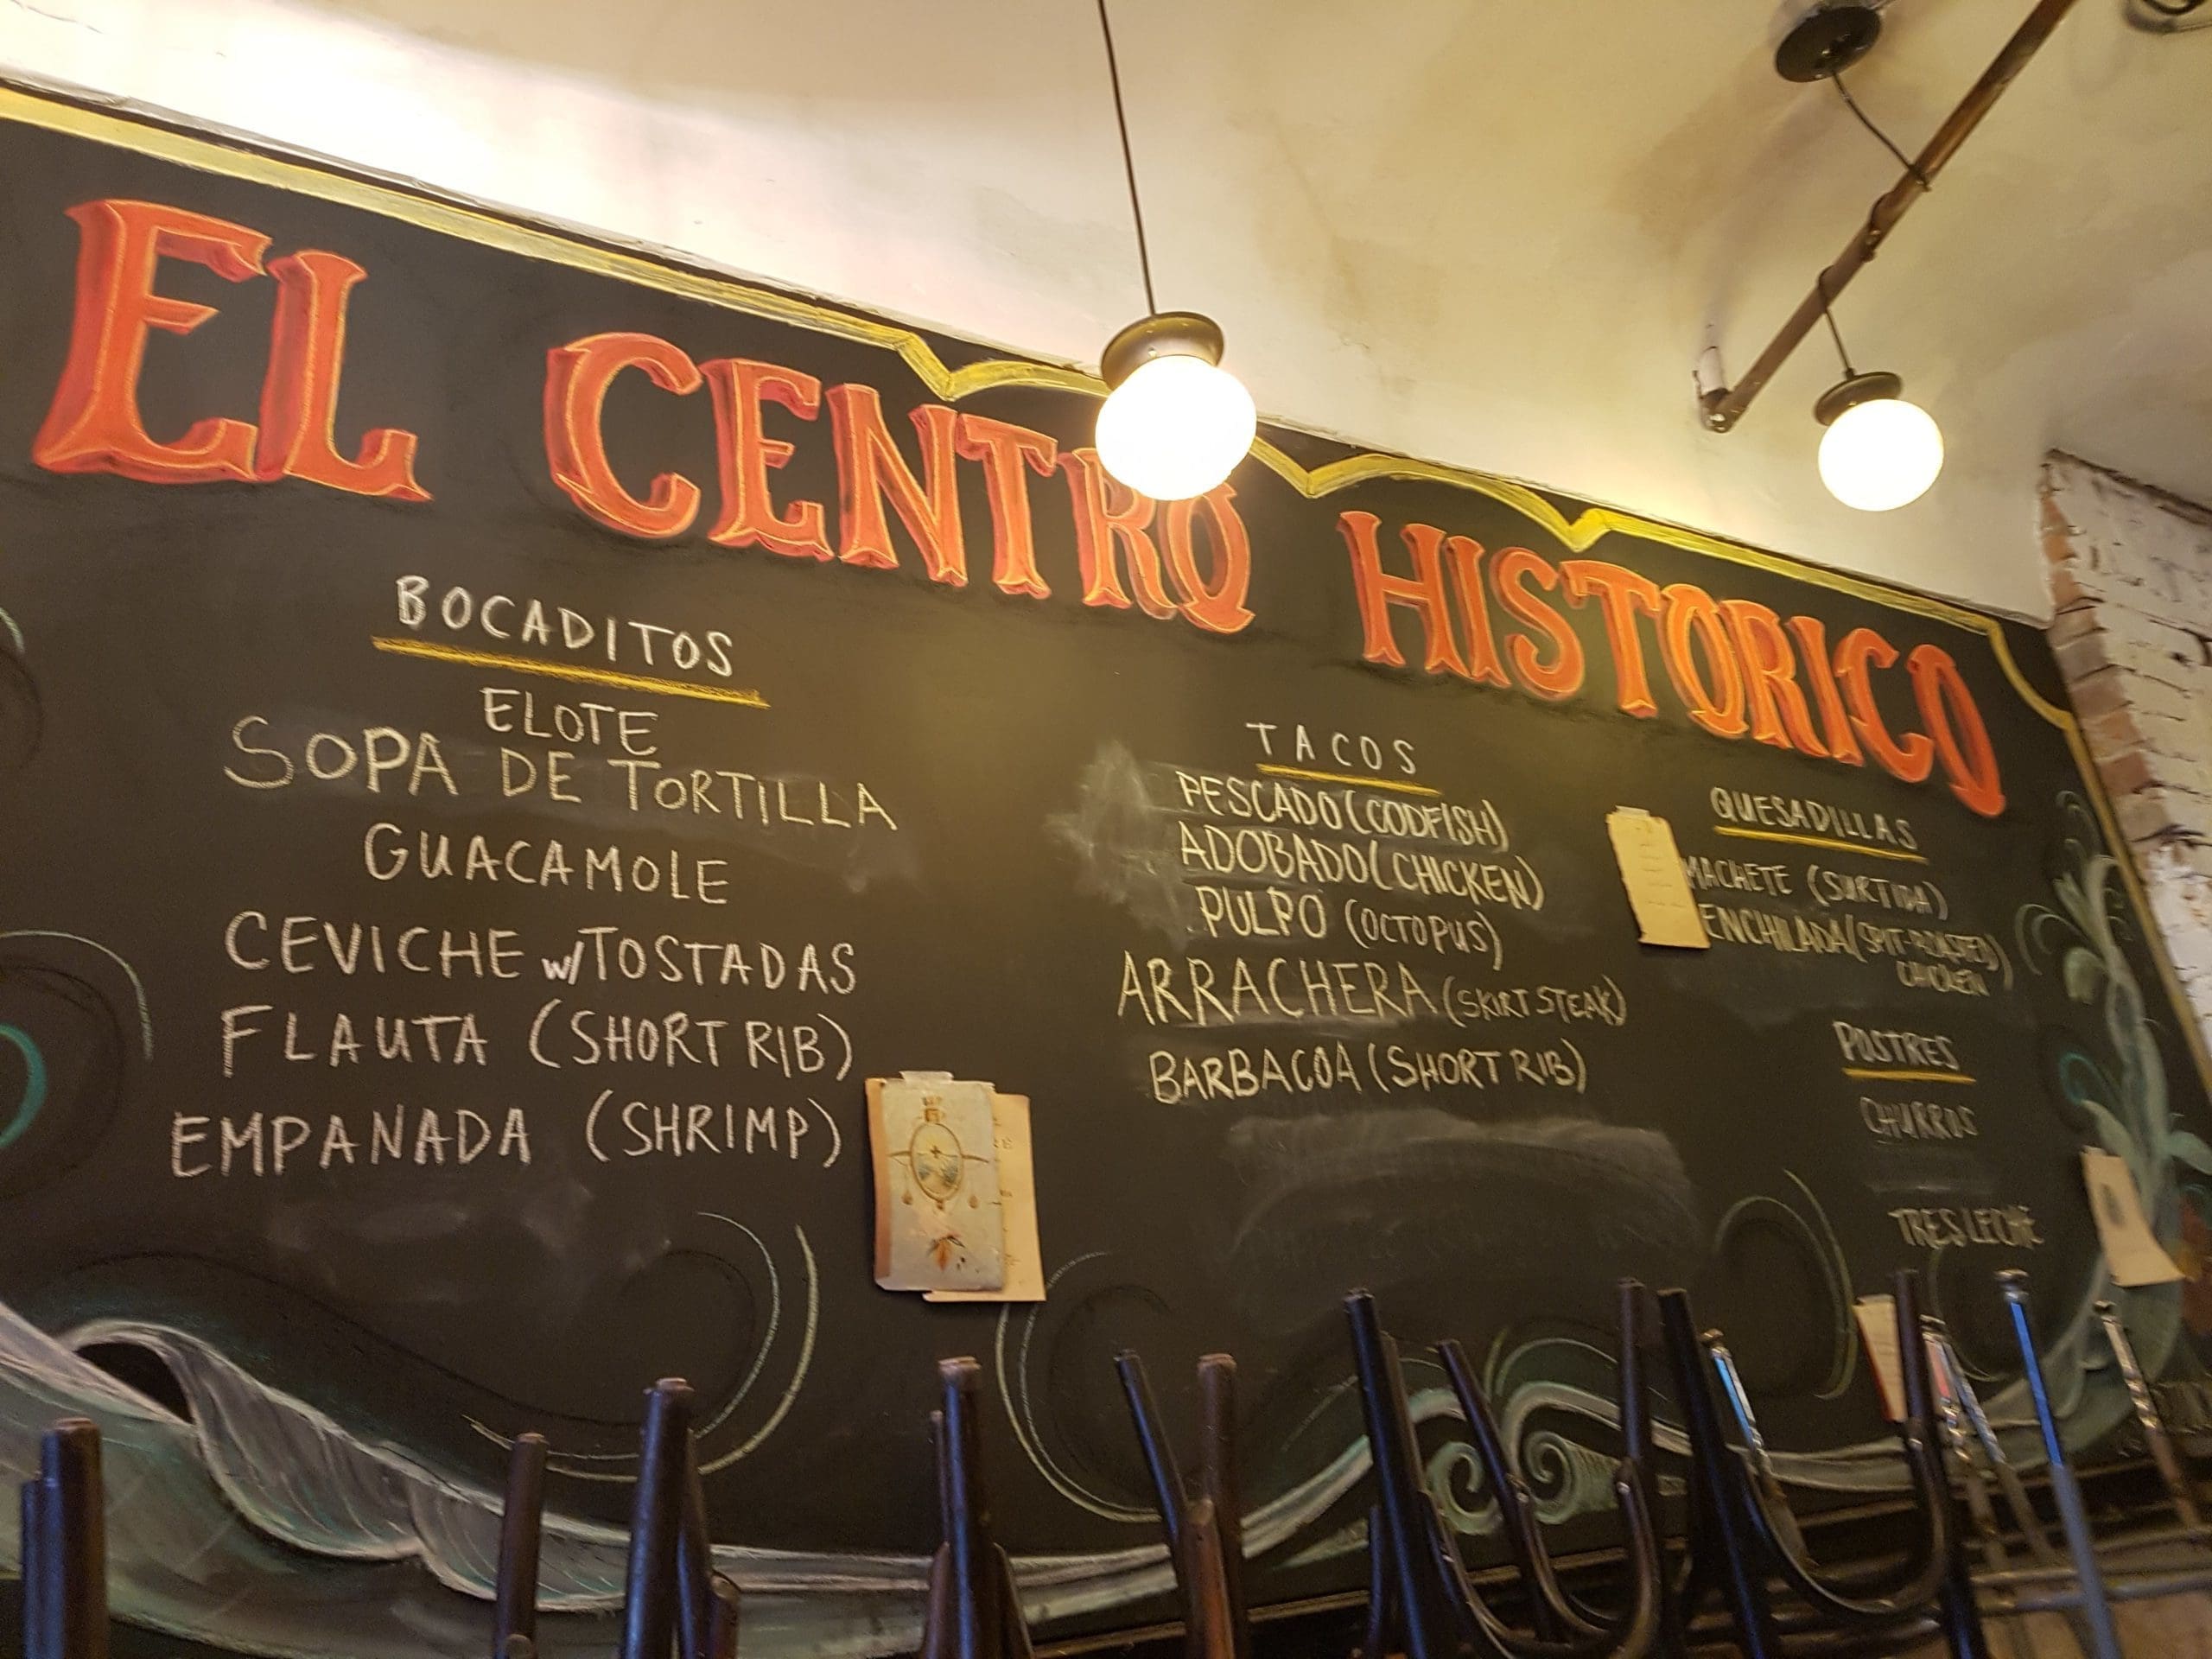 EL CENTRO HISTORICO
BOCADITOS
ELOTE
SOPA DE TORTILLA
GUACAMOLE
CEVICHE w/TOSTADAS
FLAUTA (SHORT RIB)
EMPANADA (SHRIMP)
TACOS
PESCADO (CODFISH)
ADOBADO (CHICKEN)
PULPO (OCTOPUS)
ARRACHERA (SKIRT STEAK)
BARBACOA (SHORT RIB)
QUESADILLAS
MACHETE (SURTIDA)
ENCHILADA (SPIT-ROASTED)
CHICKEN
POSTRES
CHURROS
TRES LECHE